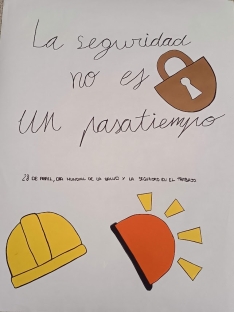 La seguridad
no es
un pasatiempo
28 DE ABRIL, DIA MUNDIAL DE LA SALUD Y LA SEGURIDAD EN EL TRABAJO